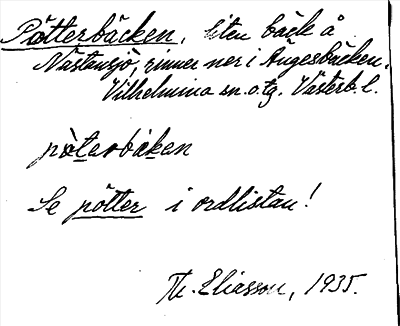 Pötterbäcken, liten bäck å
Nästansjö, rinner ner i Ångesbäcken.
Vilhelmina sn. o. tg. Västerb. l.
pò̀terbäken
Se pötter i ordlistan!
Th. Eliasson, 1935.